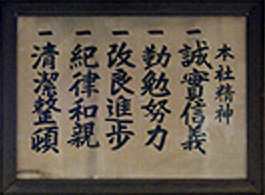 本社精神
一誠實信義
一勤勉努力
一改良進步
一紀律和親
一清潔整頓